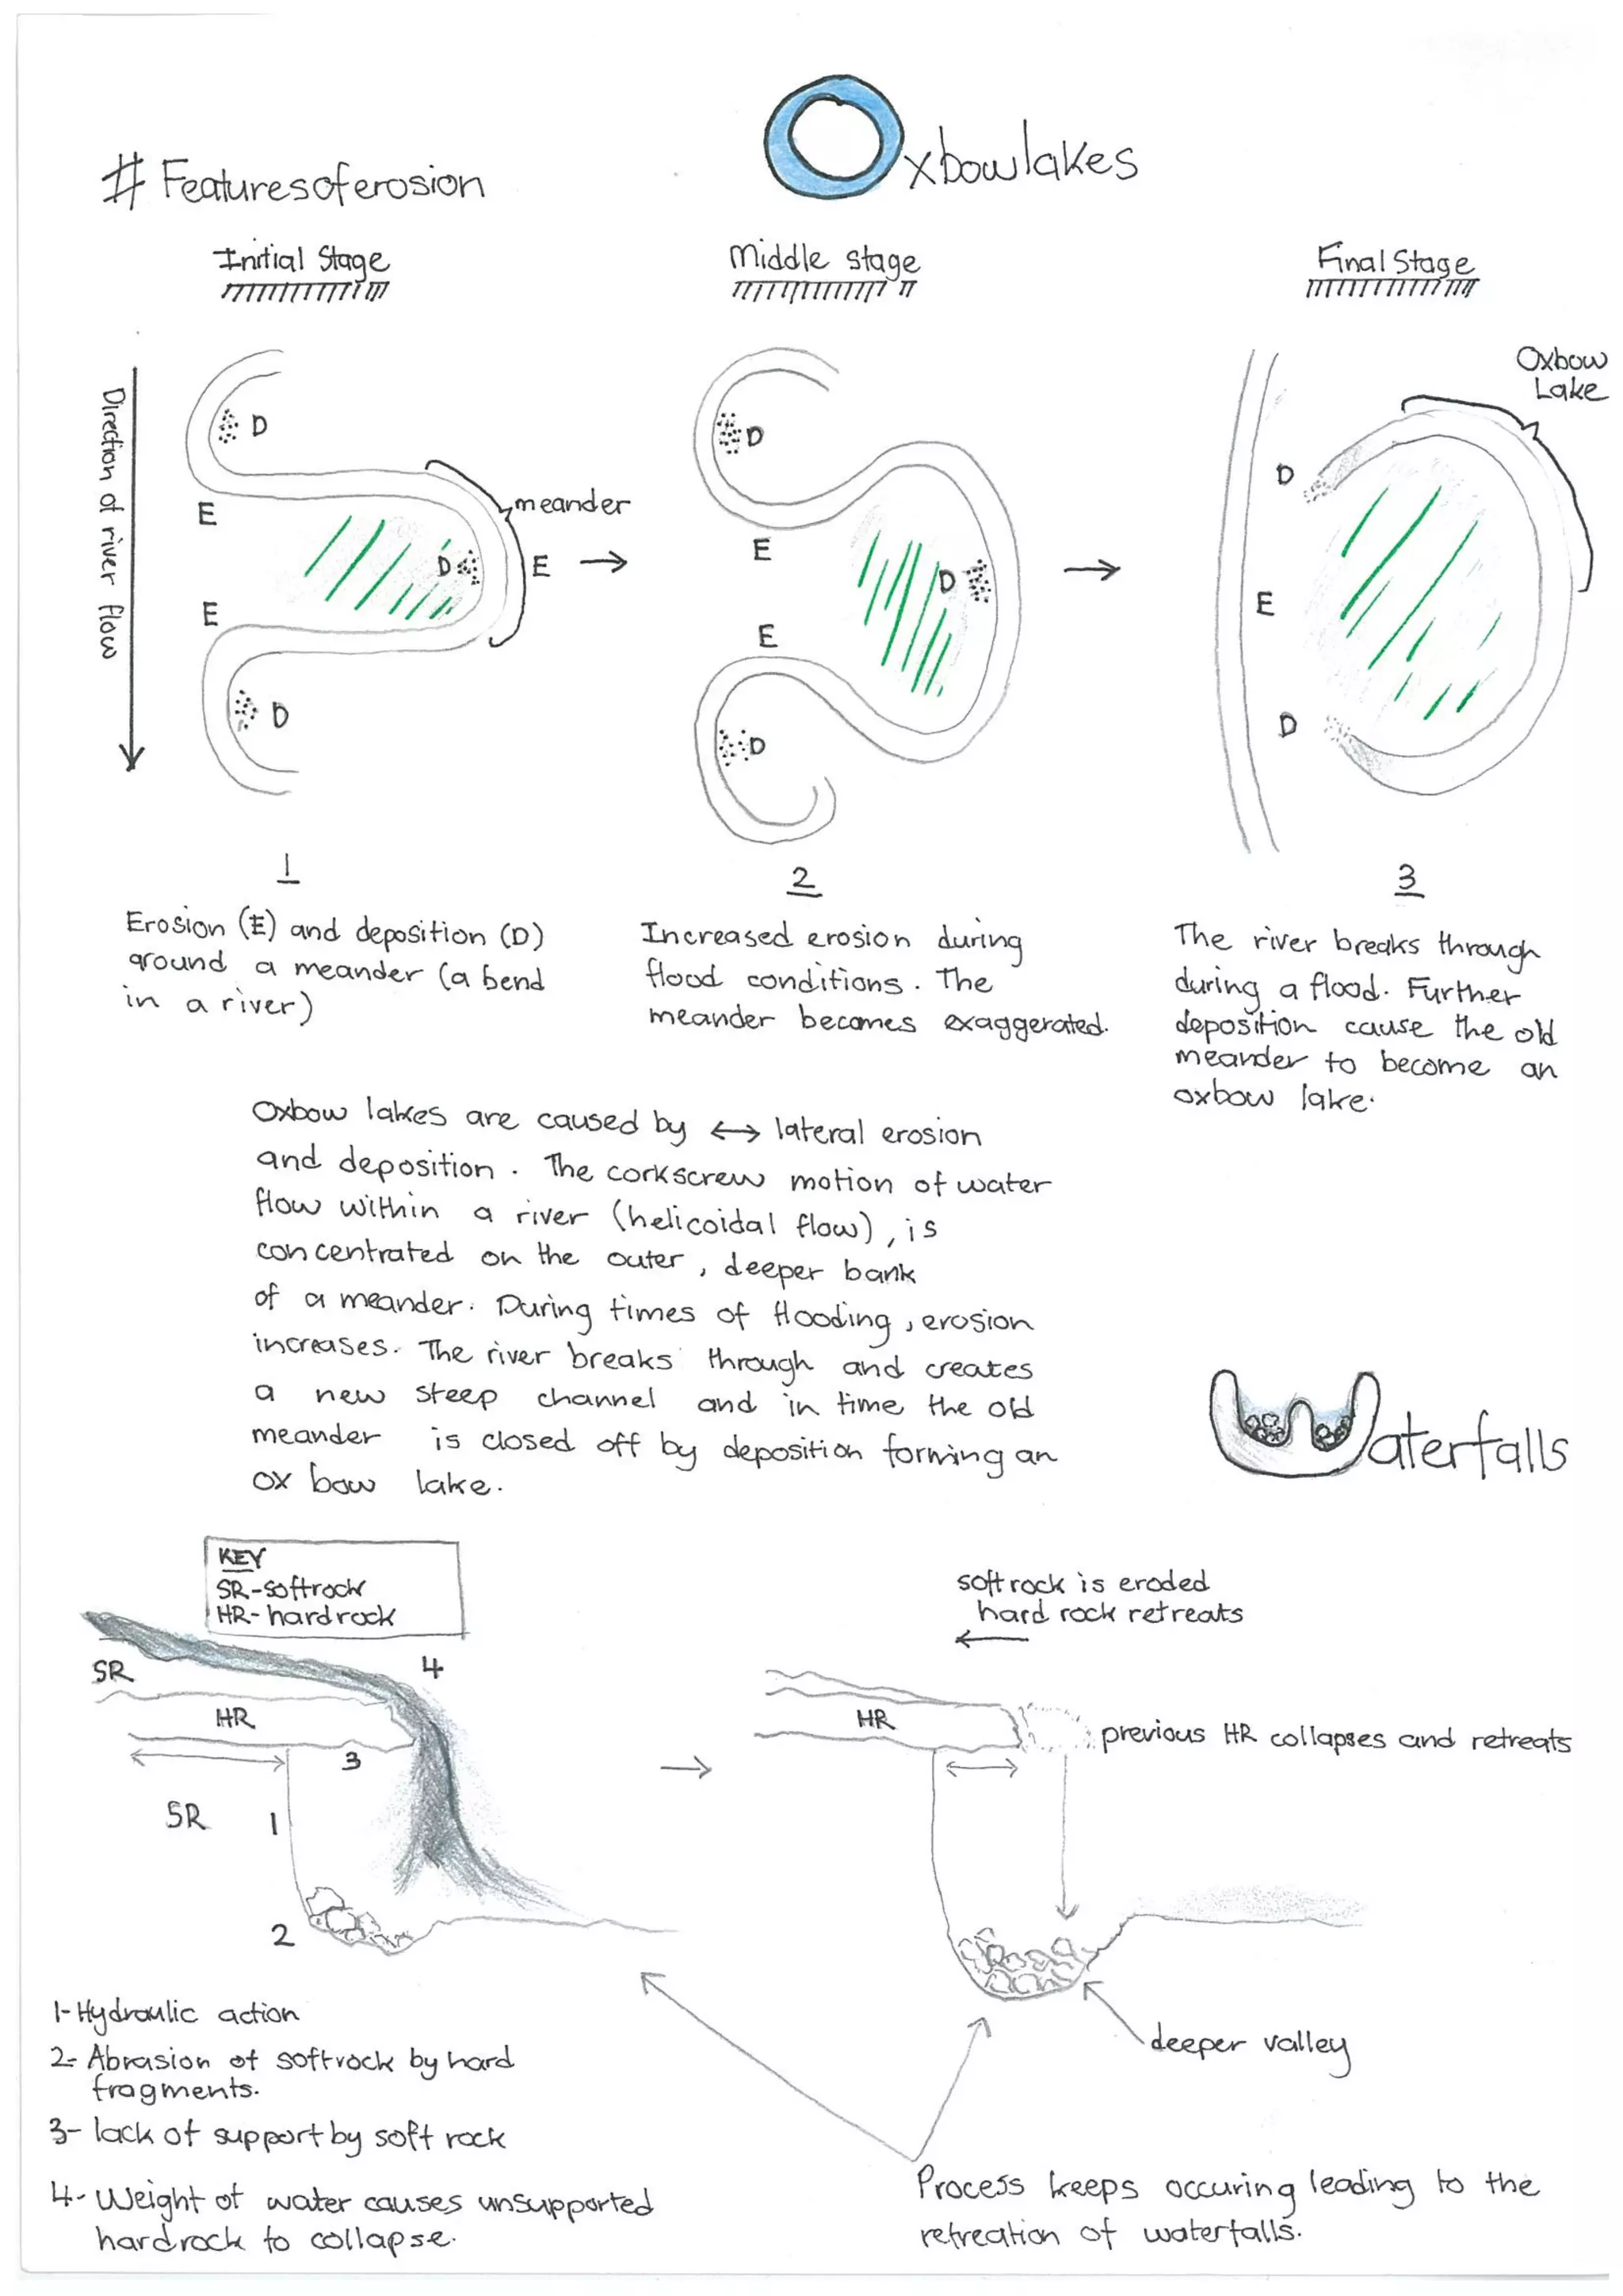 Oxbowlakes
# Featuresoferosion
Initial Stage
Middle stage
Final Stage
Direction of river flow
D
E
meander
D
E
E
D
D
E
D
E
D
Oxbow
Lake
D
E
D
1
Erosion (E) and deposition (D)
around a meander (a bend
in a river)
2
Increased erosion during
flood conditions. The
meander becomes exaggerated.
3
The river breaks through
during a flood. Further
deposition cause the old
meander to become an
oxbow lake.
Oxbow lakes are caused by ↔ lateral erosion
and deposition. The corkscrew motion of water
flow within a river (helicoidal flow), is
concentrated on the outer, deeper bank
of a meander. During times of flooding, erosion
increases. The river breaks through and creates
a new steep channel and in time the old
meander is closed off by deposition forming an
ox bow lake.
Waterfalls
KEY
SR-softrock
HR-hardrock
SR
4
HR
3
SR
1
2
softrock is eroded
hard rock retreats
HR
previous HR collapses and retreats
deeper valley
1-Hydraulic action
2- Abrasion of softrock by hard
fragments.
3- lack of support by soft rock
4- Weight of water causes unsupported
hardrock to collapse.
Process keeps occuring leading to the
retreation of waterfalls.